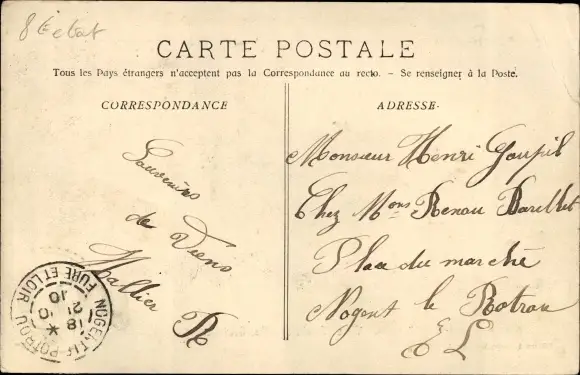 8 Etat
CARTE POSTALE
Tous les Pays étrangers n'acceptent pas la Correspondance au recto. - Se renseigner à la Poste.
CORRESPONDANCE
ADRESSE
Souvenirs
de
Hallier
R
Monsieur Henri Goupil
Chez Mons Renou
Place du marché
Nogent le Rotrou
E L
NOGENT-LE-ROTROU
18
21 10
10
EURE ET LOIR